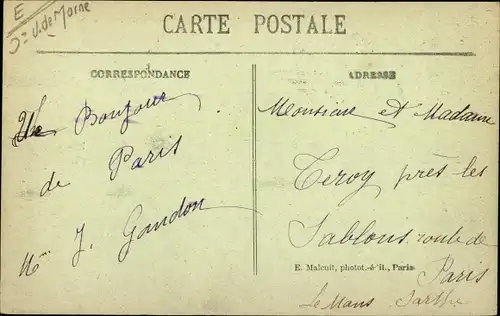 E
J=V. de Marne
CARTE POSTALE
CORRESPONDANCE
Un Bonjour
de Paris
J. Gandon
ADRESSE
Monsieur et Madame
Teroy près les
Sablons route de
Paris
Le Mans Sarthe
E. Malcuit, photot.-édit., Paris